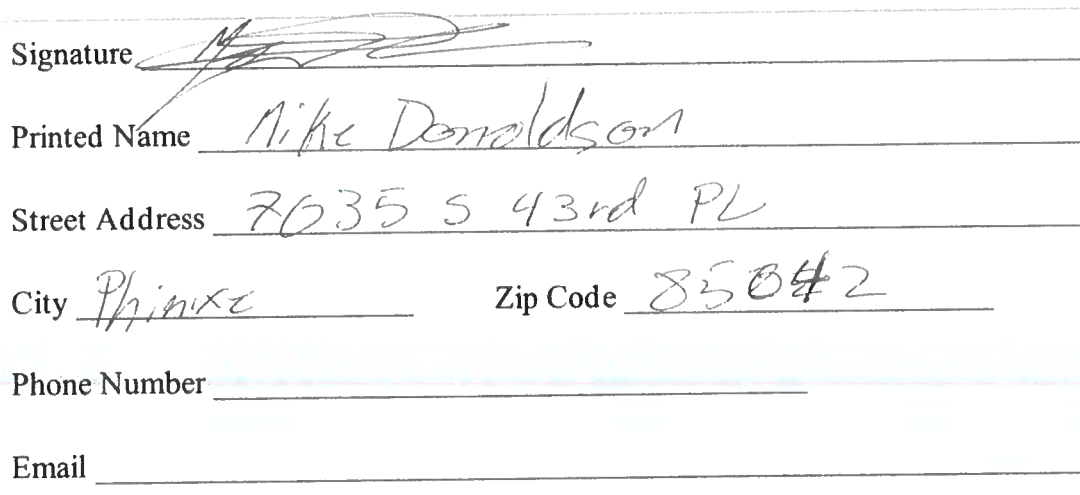 Signature
Printed Name Mike Donaldson
Street Address 7035 S 43rd PL
City Phinixe Zip Code 85042
Phone Number
Email